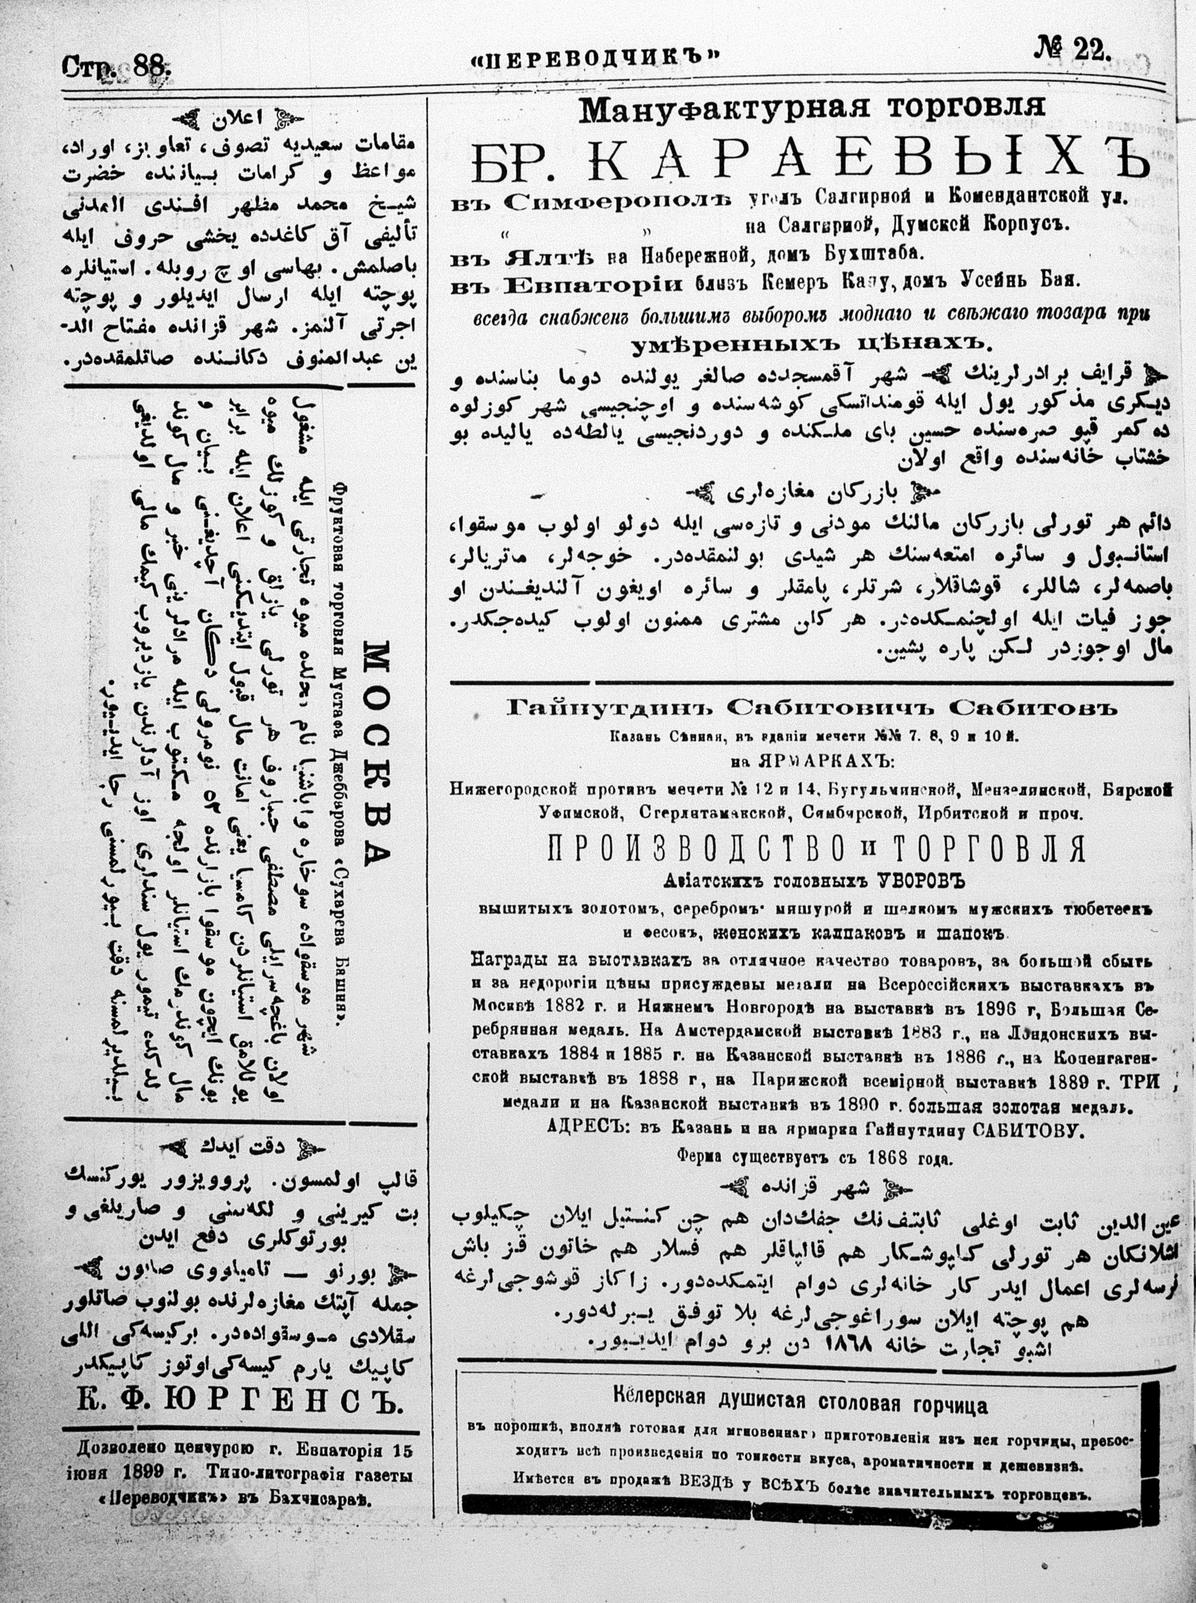 Стр. 88.
«ПЕРЕВОДЧИКЪ»
№ 22.
اعلان
مقامات سعيديه تصوف، تعاويز، اوراد،
مواعظ و كرامات بيياننده حضرت
شيخ محمد مظهر افندى المدنى
تأليفى آق كاغدده يخشى حروف ايله
باصلمش. بهاسى اوچ روبله. استيانلره
پوچته ايله ارسال ايديلور و پوچته
اجرتى آلنمز. شهر قزانده مفتاح الد-
ين عبدالمنوف دكاننده صاتلمقدهدر.
МОСКВА
Фруктовая торговля Мустафа Джеббарова «Сухарева Башня».
شهر موسقواده سوخاره واباشنيا نام محلده ميوه تجارتى ايله مشغول
اولان باغچهسرايلى مصطفى جباروف هر تورلى يازلق و كوزلك ميوه
يوللامق استيانلردن كامسيا يعنى امانت مال قبول ايتديكنى اعلان ايله برابر
بونك ايچون موسقوا بازارنده ٥٢ نومرولى دكان آچديغنى بييان و
مال كوندرمك استيانلر اولجه مكتوب ايله مرادلرينى خبر و مال كوند
رلدكده تيمور يول سندلرى اوز آدلرندن يازديروب كيمك مالى اولديغى
بيلديرلمسنه دقت بيورلمسنى رجا ايدييور.
دقت ايدك
قالپ اولمسون. پروويزور يوركنسك
بت كيرينى و لكهسنى و صاريلغى و
بورتوكلرى دفع ايدن
بورنو — تاميلووى صابون
جمله آپتك مغازهلرنده بولنوب صاتلور
سقلادى موسقوادهدر. بركيسهكى اللى
كاپيك يارم كيسهكى اوتوز كاپيكدر
К. Ф. ЮРГЕНСЪ.
Дозволено цензурою г. Евпаторія 15
іюня 1899 г. Типо-литографія газеты
«Переводчикъ» въ Бахчисараѣ.
Мануфактурная торговля
БР. КАРАЕВЫХЪ
въ Симферополѣ уголъ Салгирной и Комендантской ул.
„ „ на Салгирной, Думскей Корпусъ.
въ Ялтѣ на Набережной, домъ Бухштаба.
въ Евпаторіи близъ Кемеръ Капу, домъ Усейнъ Бая.
всегда снабженъ большимъ выборомъ моднаго и свѣжаго товара при
умѣренныхъ цѣнахъ.
قرايف برادرلرينك شهر آقمسجدده صالغر يولنده دوما بناسنده و
ديكرى مذكور يول ايله قومنداتسكى كوشهسنده و اوچنجيسى شهر كوزلوه
ده كمر قپو صرهسنده حسين باى ملكنده و دوردنجيسى يالطهده ياليده بو
خشتاب خانهسنده واقع اولان
بازركان مغازهلرى
دائم هر تورلى بازركان مالنك مودنى و تازهسى ايله دولو اولوب موسقوا،
استانبول و سائره امتعهسنك هر شيدى بولنمقدهدر. خوجهلر، ماتريالر،
باصمهلر، شاللر، قوشاقلار، شرتلر، پامقلر و سائره اويغون آلنديغندن او
جوز فيات ايله اولچنمكدهدر. هر كان مشترى ممنون اولوب كيدهجكدر.
مال اوجوزدر لكن پاره پشين.
Гайнутдинъ Сабитовичъ Сабитовъ
Казань Сѣнная, въ зданіи мечети №№ 7. 8, 9 и 10 й.
на ЯРМАРКАХЪ:
Нижегородской противъ мечети № 12 и 14, Бугульминской, Мензелинской, Бирской
Уфимской, Стерлитамакской, Симбирской, Ирбитской и проч.
ПРОИЗВОДСТВО и ТОРГОВЛЯ
Азіатскихъ головныхъ УБОРОВЪ
вышитыхъ золотомъ, серебромъ мишурой и шелкомъ мужскихъ тюбетеекъ
и фесокъ, женскихъ калпаковъ и шапокъ
Награды на выставкахъ за отличное качество товаровъ, за большой сбытъ
и за недорогіи цѣны присуждены медали на Всероссійскихъ выставкахъ въ
Москвѣ 1882 г. и Нижнемъ Новгородѣ на выставкѣ въ 1896 г, Большая Се-
ребрянная медаль. На Амстердамской выставкѣ 1883 г., на Лондонскихъ вы-
ставкахъ 1884 и 1885 г. на Казанской выставкѣ въ 1886 г., на Копенгаген-
ской выставкѣ въ 1888 г, на Парижской всемірной выставкѣ 1889 г. ТРИ
медали и на Казанской выставкѣ въ 1890 г. большая золотая медаль.
АДРЕСЪ: въ Казань и на ярмарки Гайнутдину САБИТОВУ.
Фирма существуетъ съ 1868 года.
شهر قزانده
عين الدين ثابت اوغلى ثابتفنك جفكدان هم چن كنستبل ايلان چكيلوب
اشلانكان هر تورلى كلهپوشكار هم قالپاقلر هم فسلار هم خاتون قز باش
نرسهلرى اعمال ايدر كار خانهلرى دوام ايتمكدهدور. زاكاز قوشوجىلرغه
هم پوچته ايلان سوراغوجىلرغه بلا توفق يبرلهدور.
اشبو تجارت خانه ١٨٦٨ دن برو دوام ايدييور.
Келерская душистая столовая горчица
въ порошкѣ, вполнѣ готовая для мгновеннаго приготовленія изъ нея горчицы, превос-
ходитъ всѣ произведенія по тонкости вкуса, ароматичности и дешевизнѣ.
Имѣется въ продажѣ ВЕЗДѢ у ВСѢХЪ болѣе значительныхъ торговцевъ.